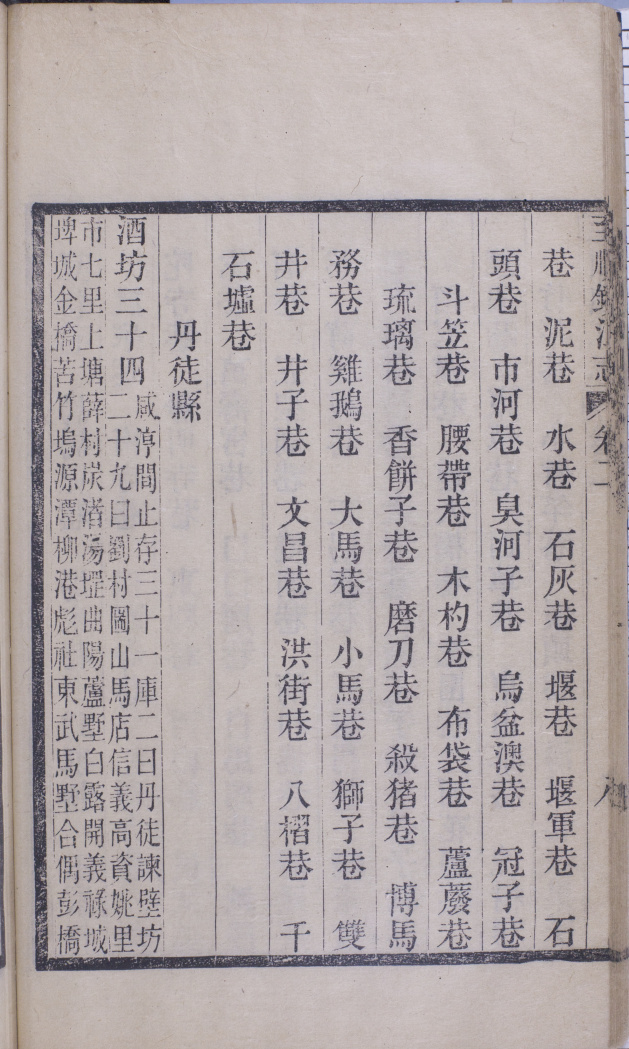 至順鎮江志 卷二 八
巷 泥巷 水巷 石灰巷 堰巷 堰軍巷 石
頭巷 市河巷 臭河子巷 烏盆澳巷 冠子巷
斗笠巷 腰帶巷 木杓巷 布袋巷 蘆蕟巷
琉璃巷 香餅子巷 磨刀巷 殺猪巷 博馬
務巷 雞鵝巷 大馬巷 小馬巷 獅子巷 雙
井巷 井子巷 文昌巷 洪街巷 八槢巷 千
石墟巷
丹徒縣
酒坊三十四
咸淳間止存三十一庫二曰丹徒諫壁坊
二十九曰劉村圌山馬店信義高資姚里
市七里上塘薛村炭渚湯堽曲陽蘆墅白露開義祿城
埤城金橋苦竹塢源潭柳港彪社東武馬墅合偶彭橋